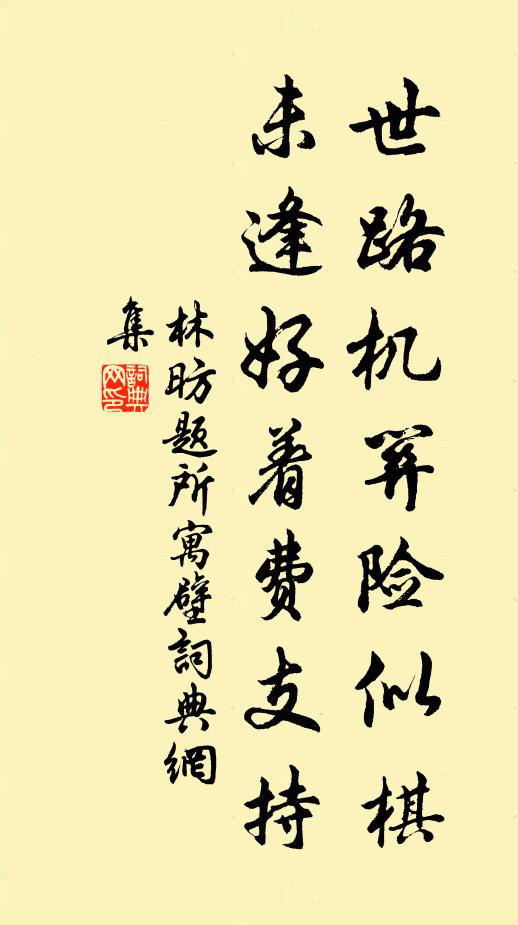 世路机筭险似棋
未逢好着费支持
林昉题所寓壁詞典網
集
詞典网印